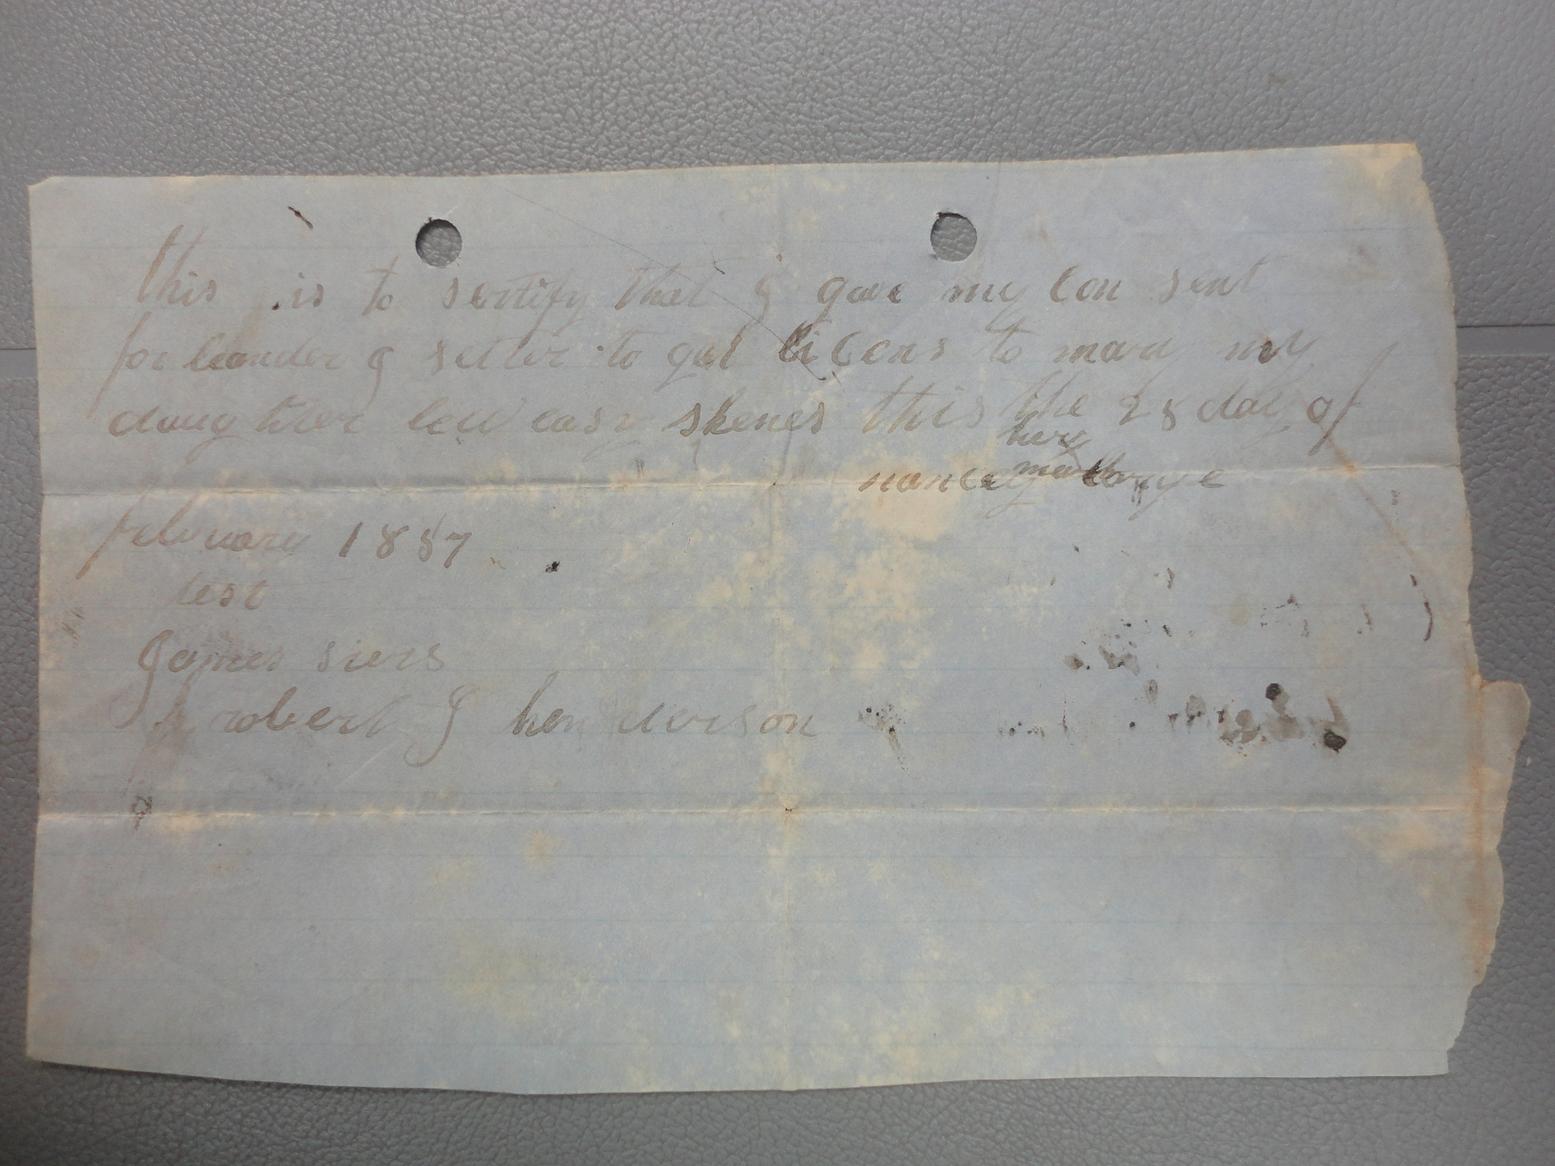 this is to sertify that I gave my Con sent
for leander J setler to get licens to mary my
daughter lew easy skenes this the 28 day of
her
nancy mark
february 1857
test
James siers
robert J hen derson